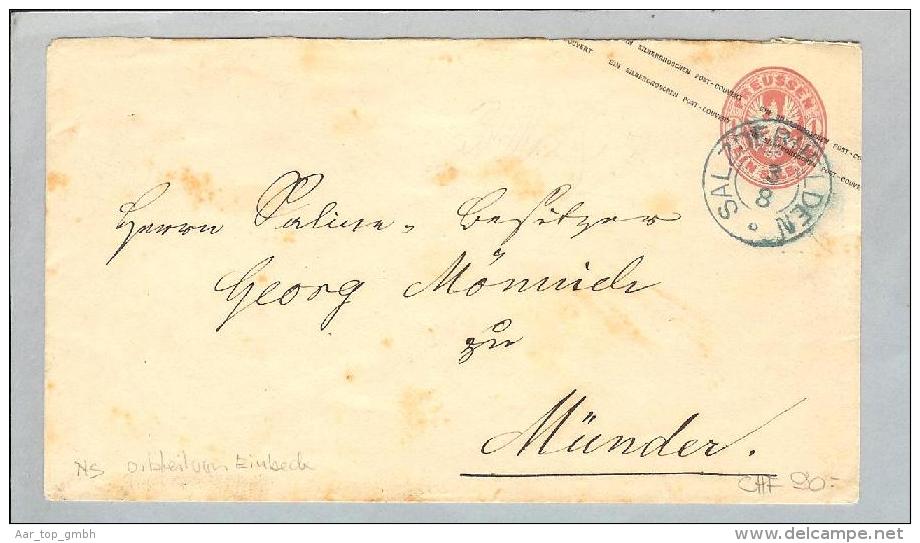 EIN SILBERGROSCHEN POST-COUVERT
EIN SILBERGROSCHEN POST-COUVERT
EIN SILBERGROSCHEN POST-COUVERT
PREUSSEN
EIN SILBERGR.
SALZDERHELDEN
3
8
Herrn Saline-Besitzer
Georg Mönnich
zu
Münder.
NS Ortsteil von Einbeck
CHF 90.-
Aar_top_gmbh
www.delcampe.net